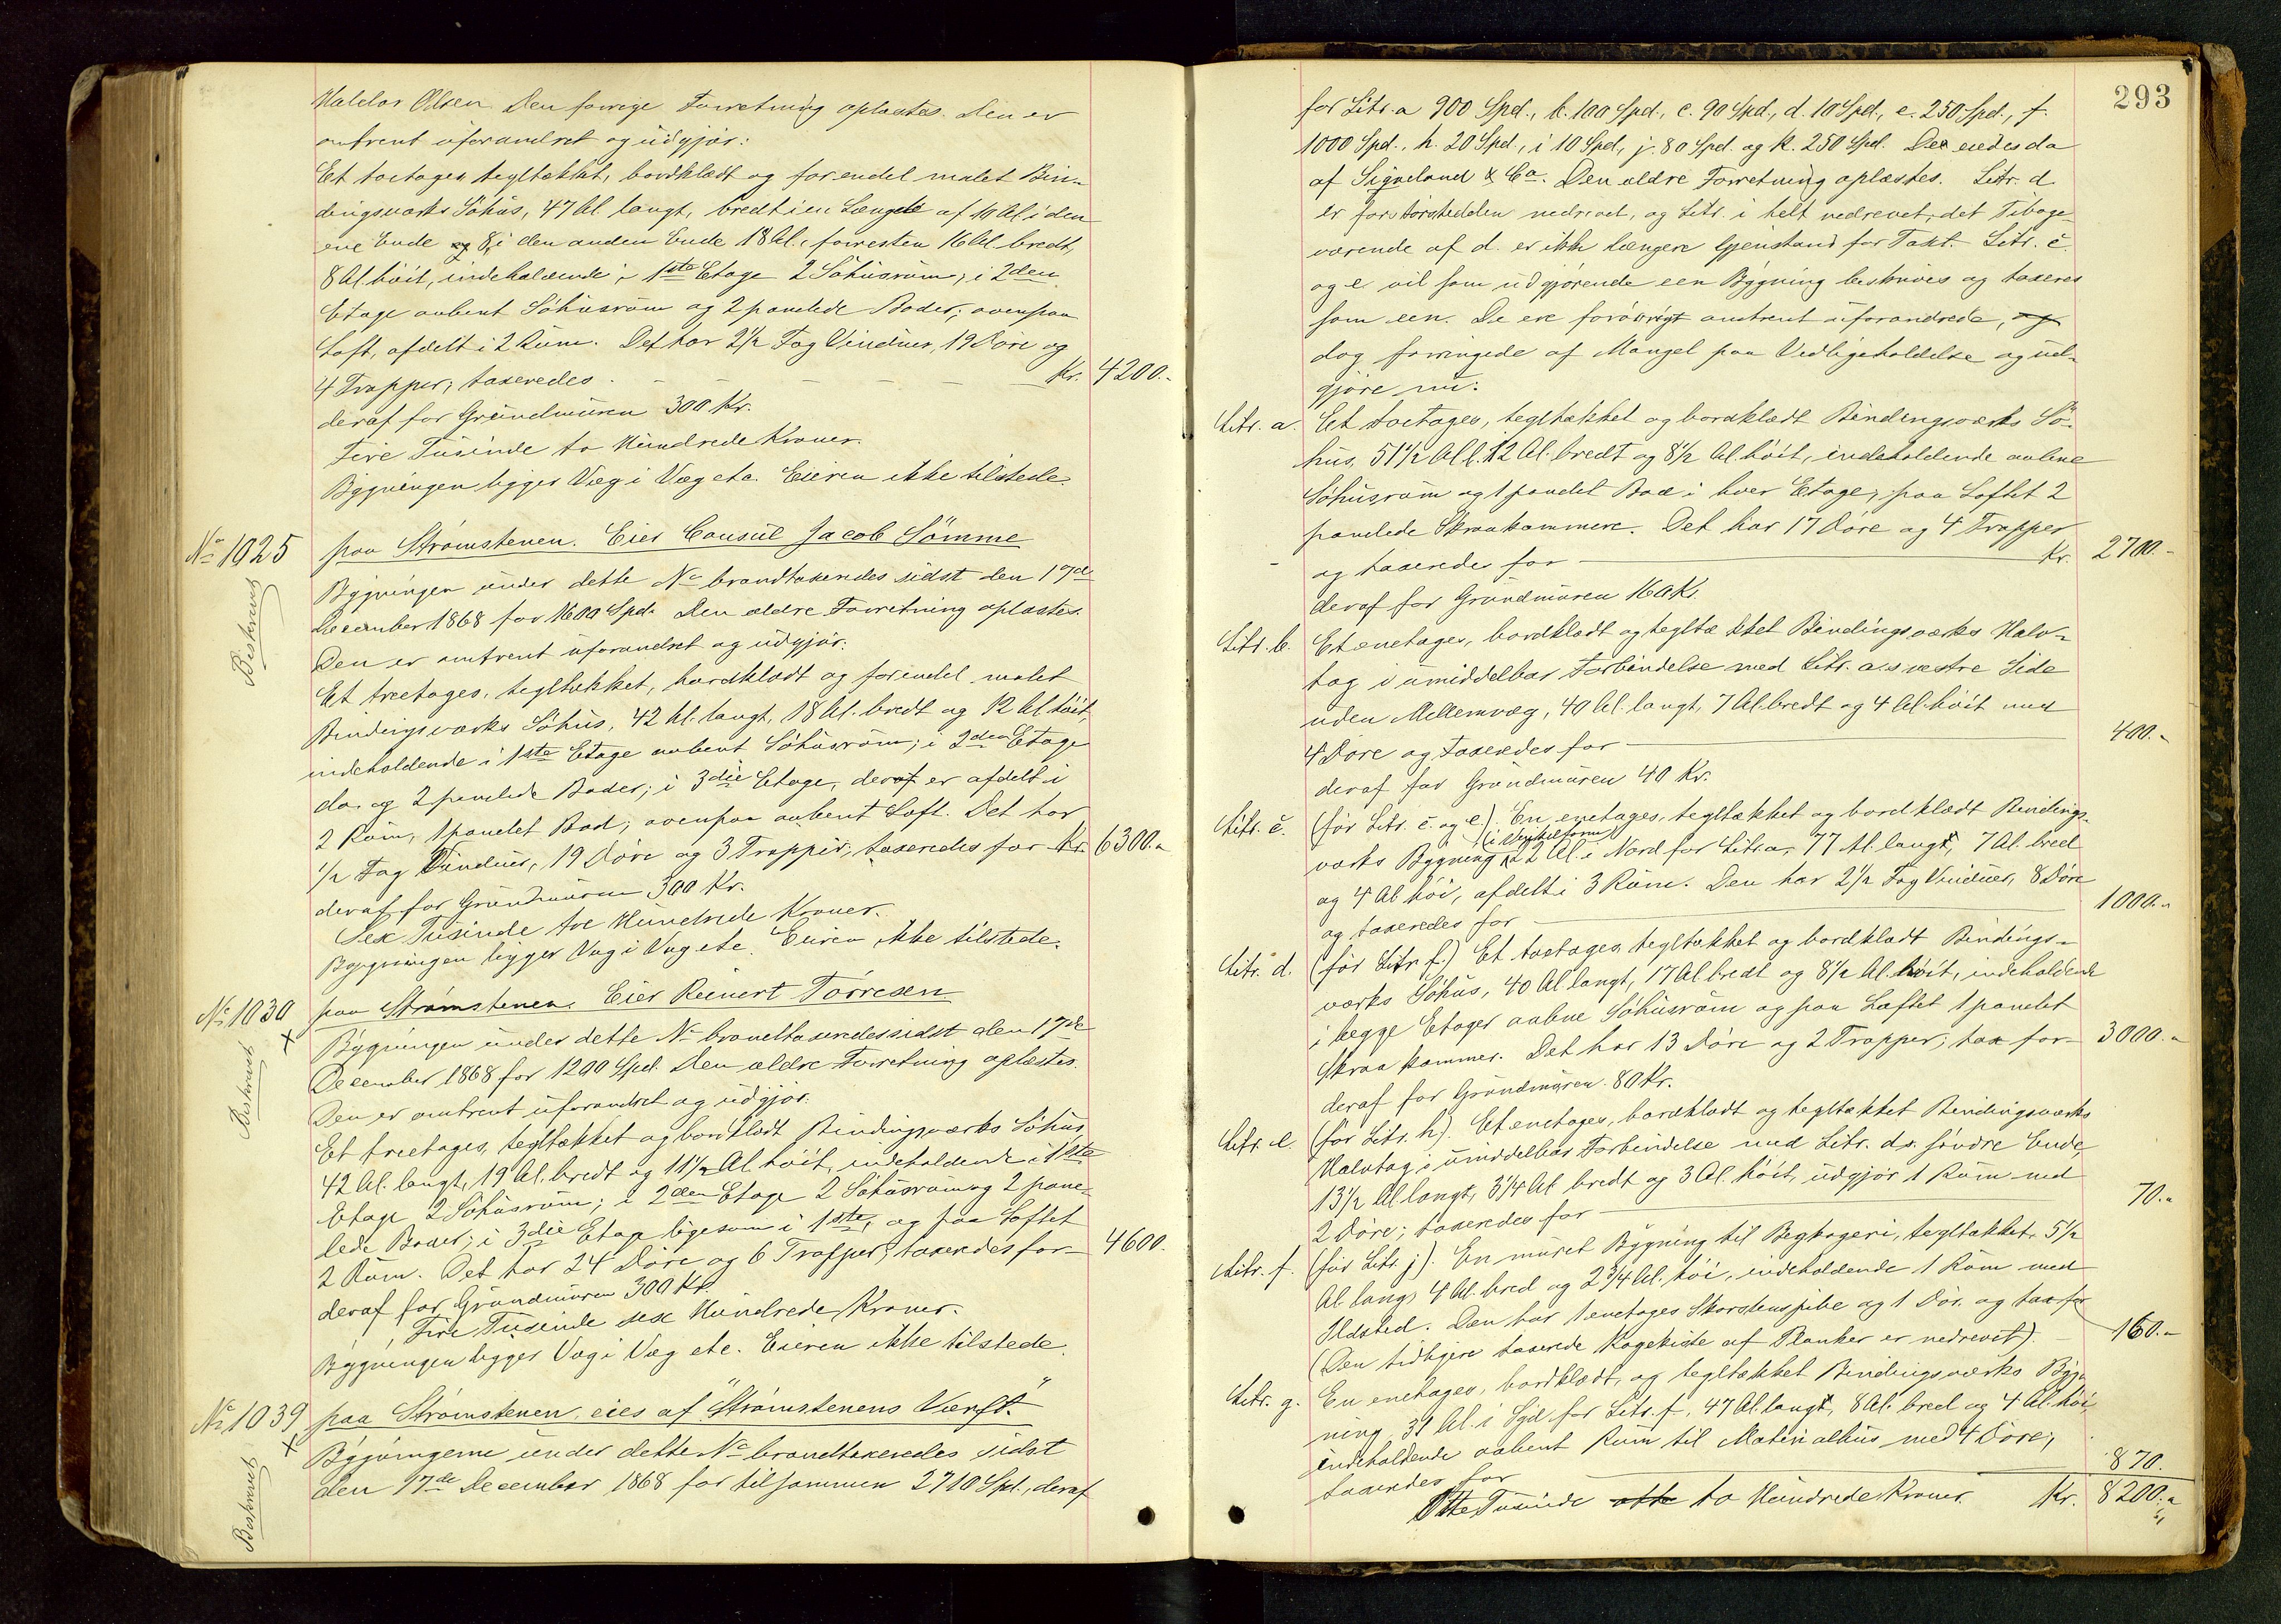 Haldor Olsen. Den forrige Forretning oplæstes. Den er
omtrent uforandret og udgjør:
Et toetages tegltækket, bordklædt og forendel malet Bin-
dingsværks Söhus, 47 Al. langt, bredt i en Længde af 10 Al. i den
ene Ende og 8, i den anden Ende 18 Al., forresten 16 Al. bredt,
8 Al. höit, indeholdende i 1ste Etage 2 Söhusrum; i 2den
Etage aabent Söhusrum og 2 panelede Boder; ovenpaa
Loft, afdelt i 2 Rum. Det har 2 1/2 Fag Vinduer, 19 Döre og
4 Trapper, taxeredes - - - - - Kr. 4200.-
deraf for Grundmuren 300 Kr.
Fire Tusinde to Hundrede Kroner.
Bygningen ligger Væg i Væg etc. Eieren ikke tilstede
No 1025 paa Strömstenen. Eier Consul Jacob Sömme
Beskrevet
Bygningen under dette No brandtaxeredes sidst den 17de
December 1868 for 1600 Spd. Den ældre Forretning oplæstes.
Den er omtrent uforandret og udgjør:
Et treetages, tegltækket, bordklædt og forendel malet
Bindingsværks Söhus, 42 Al. langt, 18 Al. bredt og 12 Al. höit,
indeholdende i 1ste Etage aabent Söhusrum; i 2den Etage
do. og 2 panelede Boder; i 3die Etage, deraf er afdelt i
2 Rum, 1 panelet Bod; ovenpaa aabent Loft. Det har
1/2 Fag Vinduer, 19 Döre og 3 Trapper, taxeredes for Kr. 6300.-
deraf for Grundmuren 300 Kr.
Sex Tusinde tre Hundrede Kroner.
Bygningen ligger Væg i Væg etc. Eieren ikke tilstede.
No 1030 paa Strömstenen. Eier Reinert Törresen
x
Beskrevet
Bygningen under dette No brandtaxeredes sidst den 17de
December 1868 for 1200 Spd. Den ældre Forretning oplæstes.
Den er omtrent uforandret og udgjør:
Et treetages, tegltækket og bordklædt Bindingsværks Söhus,
42 Al. langt, 19 Al. bredt og 11 1/2 Al. höit, indeholdende i 1ste
Etage 2 Söhusrum; i 2den Etage 2 Söhusrum og 2 pane-
lede Boder; i 3die Etage ligesom i 1ste, og paa Loftet
2 Rum. Det har 24 Döre og 6 Trapper; taxeredes for 4600.
deraf for Grundmuren 300 Kr.
Fire Tusinde sex Hundrede Kroner.
Bygningen ligger Væg i Væg etc. Eieren ikke tilstede.
No 1039 paa Strömstenen, eies af "Strömstenens Værft."
x
Beskrevet
Bygningerne under dette No brandtaxeredes sidst
den 17de December 1868 for tilsammen 2710 Spd., deraf
293
for Litr. a 900 Spd., b. 100 Spd., c. 90 Spd., d. 10 Spd., e. 250 Spd., f.
1000 Spd., h. 20 Spd., i 10 Spd., j. 80 Spd. og k. 250 Spd. De eiedes da
af Sigveland & Co. Den ældre Forretning oplæstes. Litr. d
er for störstedelen nedrevet, og Litr. i helt nedrevet, det Tilbage-
værende af d. er ikke længere Gjenstand for Taxt. Litr. c
og e vil som udgjörende een Bygning beskrives og taxeres
som een. De ere forövrigt omtrent uforandrede, og
dog forringede af Mangel paa Vedligeholdelse og ud-
gjöre nu:
Litr. a. Et toetages, tegltækket og bordklædt Bindingsværks Sö-
hus, 51 1/2 Al. l. 12 Al. bredt og 8 1/2 Al. höit, indeholdende aabne
Söhusrum og 1 panelet Bod i hver Etage, paa Loftet 2
panelede Skraakammere. Det har 17 Döre og 4 Trapper
og taxeredes for Kr. 2700.-
deraf for Grundmuren 160 Kr.
Litr. b. Et enetages, bordklædt og tegltækket Bindingsværks Halv-
tag i umiddelbar Forbindelse med Litr. a's vestre Side
uden Mellemvæg, 40 Al. langt, 7 Al. bredt og 4 Al. höit med
4 Döre og taxeredes for 400.-
deraf for Grundmuren 40 Kr.
Litr. c. (för Litr. c. og e.) En enetages, tegltækket og bordklædt Bindings-
værks Bygning (i Vinkelform) 22 Al. i Nord for Litr. a, 77 Al. lang, 7 Al. bred
og 4 Al. höi, afdelt i 3 Rum. Den har 2 1/2 Fag Vinduer, 8 Döre
og taxeredes for 1000.-
Litr. d. (för Litr. f.) Et toetages tegltækket og bordklædt Bindings-
værks Söhus, 40 Al. langt, 17 Al. bredt og 8 1/2 Al. höit, indeholdende
i begge Etager aabne Söhusrum og paa Loftet 1 panelet
Skraakammer. Det har 13 Döre og 2 Trapper; tax for 3000.-
deraf for Grundmuren 80 Kr.
Litr. e. (för Litr. h). Et enetages, bordklædt og tegltækket Bindingsværks
Halvtag i umiddelbar Forbindelse med Litr. d's söndre Ende,
13 1/2 Al. langt, 3 1/4 Al. bredt og 3 Al. höit, udgjör 1 Rum med
2 Döre; taxeredes for 70.-
Litr. f. (för Litr. j). En muret Bygning til Begkogeri, tegltækket, 5 1/2
Al. lang, 4 Al. bred og 2 3/4 Al. höi, indeholdende 1 Rum med
Ildsted. Den har 1 enetages Skorstenspibe og 1 Dör. og tax for 160.-
(Den tidligere taxerede Kogekiste af Planker er nedrevet).
Litr. g. En enetages, bordklædt, og tegltækket Bindingsværks Byg-
ning, 31 Al. i Syd for Litr. f, 47 Al. lang, 8 Al. bred og 4 Al. höi,
indeholdende aabent Rum til Materialhus med 4 Döre;
taxeredes for 870.
Otte Tusinde otte to Hundrede Kroner. Kr. 8200.-